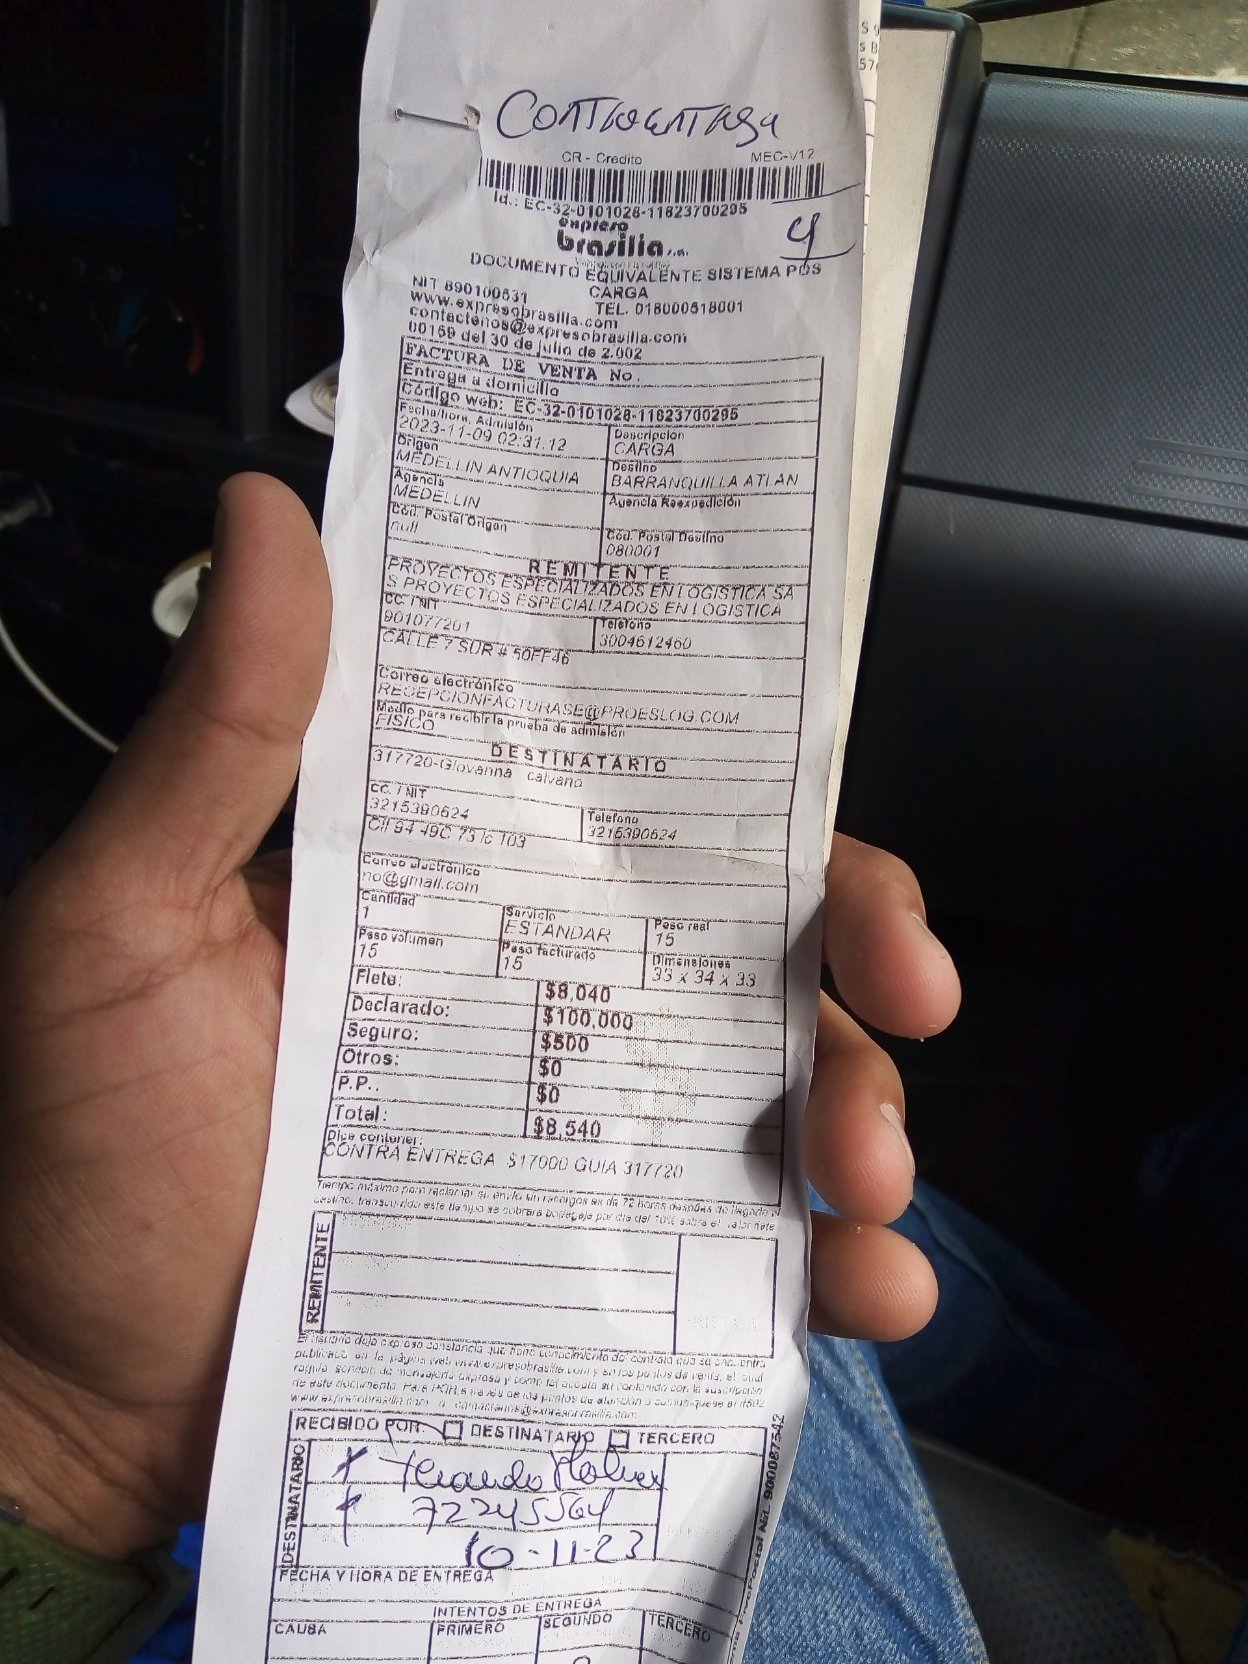 Contraentrega
CR - Credito MEC-V12
Id.: EC-32-0101028-11823700295
4
expreso
brasilia s.a.
DOCUMENTO EQUIVALENTE SISTEMA POS
CARGA
NIT 890100531 TEL. 018000518001
www.expresobrasilia.com
contactenos@expresobrasilia.com
00169 del 30 de julio de 2.002
FACTURA DE VENTA No.
Entrega a domicilio
Código web: EC-32-0101028-11823700295
Fecha/hora. Admisión Descripción
2023-11-09 02:31.12 CARGA
Origen Destino
MEDELLIN ANTIOQUIA BARRANQUILLA ATLAN
Agencia Agencia Reexpedición
MEDELLIN
Cód. Postal Origen Cód. Postal Destino
null 080001
REMITENTE
PROYECTOS ESPECIALIZADOS EN LOGISTICA SA
S PROYECTOS ESPECIALIZADOS EN LOGISTICA
CC. / NIT Teléfono
901077201 3004612460
CALLE 7 SUR # 50FF46
Correo electrónico
RECEPCIONFACTURASE@PROESLOG.COM
Medio para recibir la prueba de admisión
FISICO
DESTINATARIO
317720-Giovanna calvano
CC. / NIT Teléfono
3215390624 3215390624
Cll 94 49C 73 lc 103
Correo electrónico
no@gmail.com
Cantidad Servicio Peso real
1 ESTANDAR 15
Peso volumen Peso facturado Dimensiones
15 15 33 x 34 x 33
Flete: $8,040
Declarado: $100,000
Seguro: $500
Otros: $0
P.P.: $0
Total: $8,540
Dice contener:
CONTRA ENTREGA $17000 GUIA 317720
Tiempo máximo para reclamar su envío sin recargos es de 72 horas después de llegado al
destino, transcurrido este tiempo se cobrará bodegaje por día del 10% sobre el valor flete
REMITENTE
El usuario deja expresa constancia que tiene conocimiento del contrato que se encuentra
publicado en la página web www.expresobrasilia.com y en los puntos de venta, el cual
regula servicio de mensajería expresa y como tal acepta su contenido con la suscripción
de este documento. Para PQR a través de los puntos de atención o comuníquese al
www.expresobrasilia.com o contactenos@expresobrasilia.com
RECIBIDO POR: DESTINATARIO TERCERO
DESTINATARIO
72245564
10-11-23
FECHA Y HORA DE ENTREGA
INTENTOS DE ENTREGA
CAUSA PRIMERO SEGUNDO TERCERO
Nit. 900087542